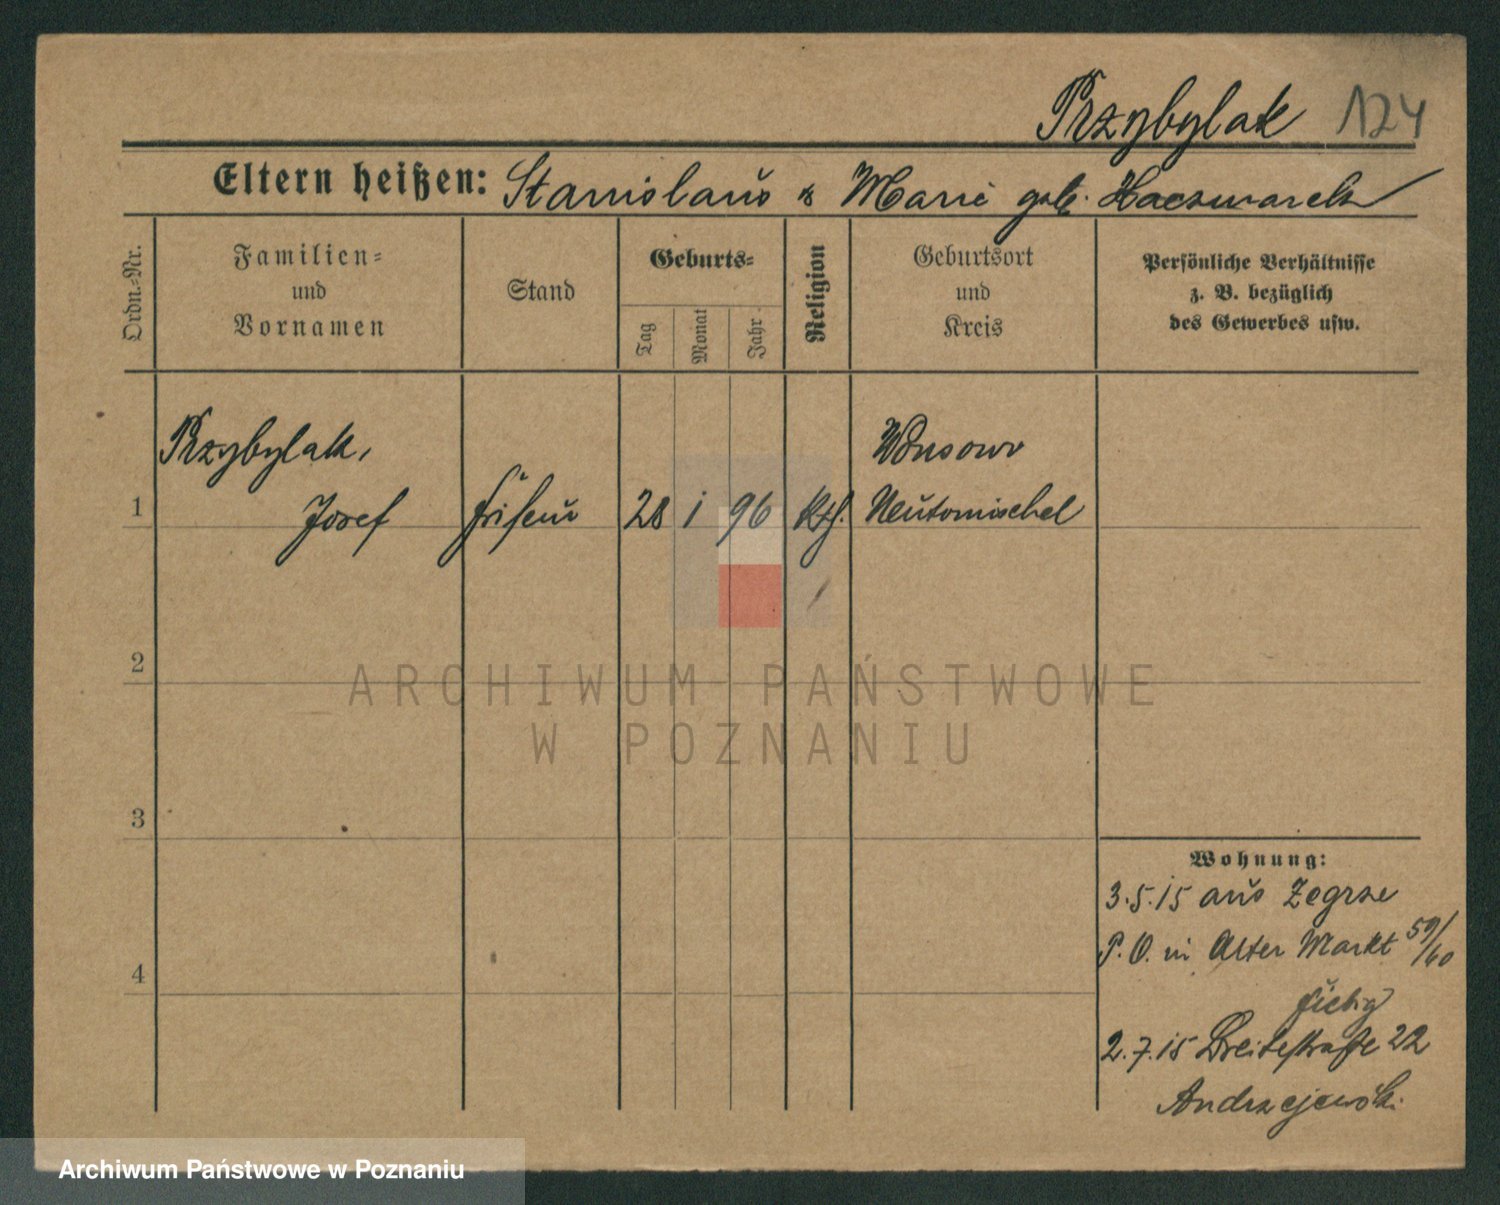 Przybylak 124
Eltern heißen: Stanislaus & Marie geb. Kaczmarek
Ordn.-Nr.
Familien-
und
Vornamen
Stand
Geburts-
Tag
Monat
Jahr
Religion
Geburtsort
und
Kreis
Persönliche Verhältnisse
z. B. bezüglich
des Gewerbes usw.
Przybylak,
Wonsowo
1 Josef Friseur 28 1 96 kth. Neutomischel
2
ARCHIWUM PAŃSTWOWE
W POZNANIU
3
Wohnung:
3.5.15 aus Zegrze
P. O. in Alter Markt 59/60
4
Fiebig
2.7.15 Breitestraße 22
Andrzejewski
Archiwum Państwowe w Poznaniu